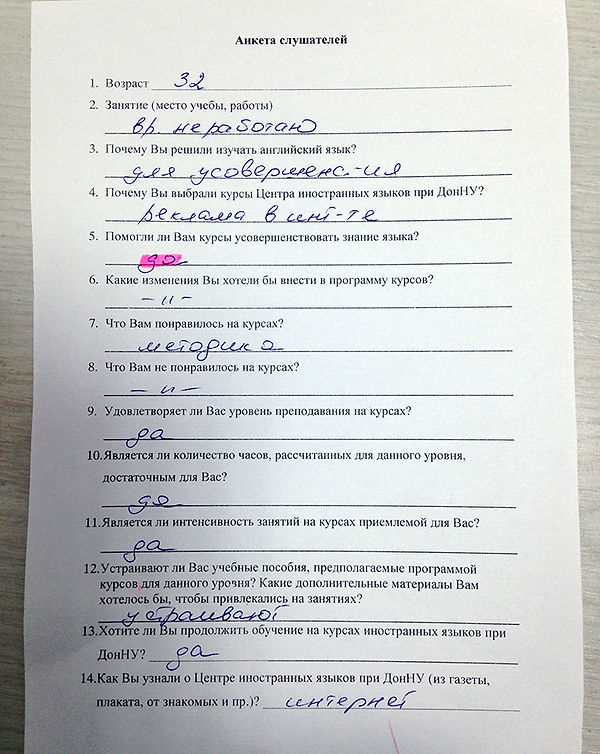 Анкета слушателей
1. Возраст 32
2. Занятие (место учебы, работы)
вр. неработаю
3. Почему Вы решили изучать английский язык?
для усовершенс-ия
4. Почему Вы выбрали курсы Центра иностранных языков при ДонНУ?
реклама в инт-те
5. Помогли ли Вам курсы усовершенствовать знание языка?
да
6. Какие изменения Вы хотели бы внести в программу курсов?
– и –
7. Что Вам понравилось на курсах?
методика
8. Что Вам не понравилось на курсах?
– и –
9. Удовлетворяет ли Вас уровень преподавания на курсах?
да
10.Является ли количество часов, рассчитанных для данного уровня,
достаточным для Вас?
да
11.Является ли интенсивность занятий на курсах приемлемой для Вас?
да
12.Устраивают ли Вас учебные пособия, предполагаемые программой
курсов для данного уровня? Какие дополнительные материалы Вам
хотелось бы, чтобы привлекались на занятиях?
устраивают
13.Хотите ли Вы продолжить обучение на курсах иностранных языков при
ДонНУ? да
14.Как Вы узнали о Центре иностранных языков при ДонНУ (из газеты,
плаката, от знакомых и пр.)? интернет